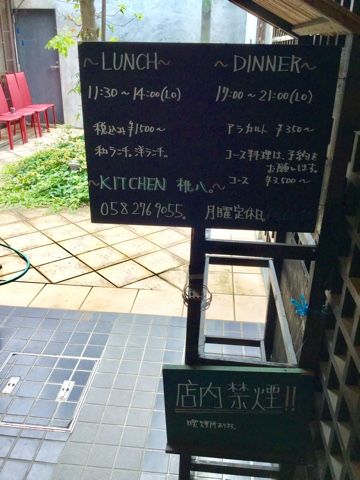 ~LUNCH~
11:30~14:00(LO)
税込み¥1500~
和ランチ、洋ランチ。
~DINNER~
19:00~21:00(LO)
アラカルト ¥350~
コース料理は、予約を
お願いします。
コース ¥3,500~
~KITCHEN 桃八。
058 276 9055. 月曜定休日
店内禁煙!!
喫煙所あります。